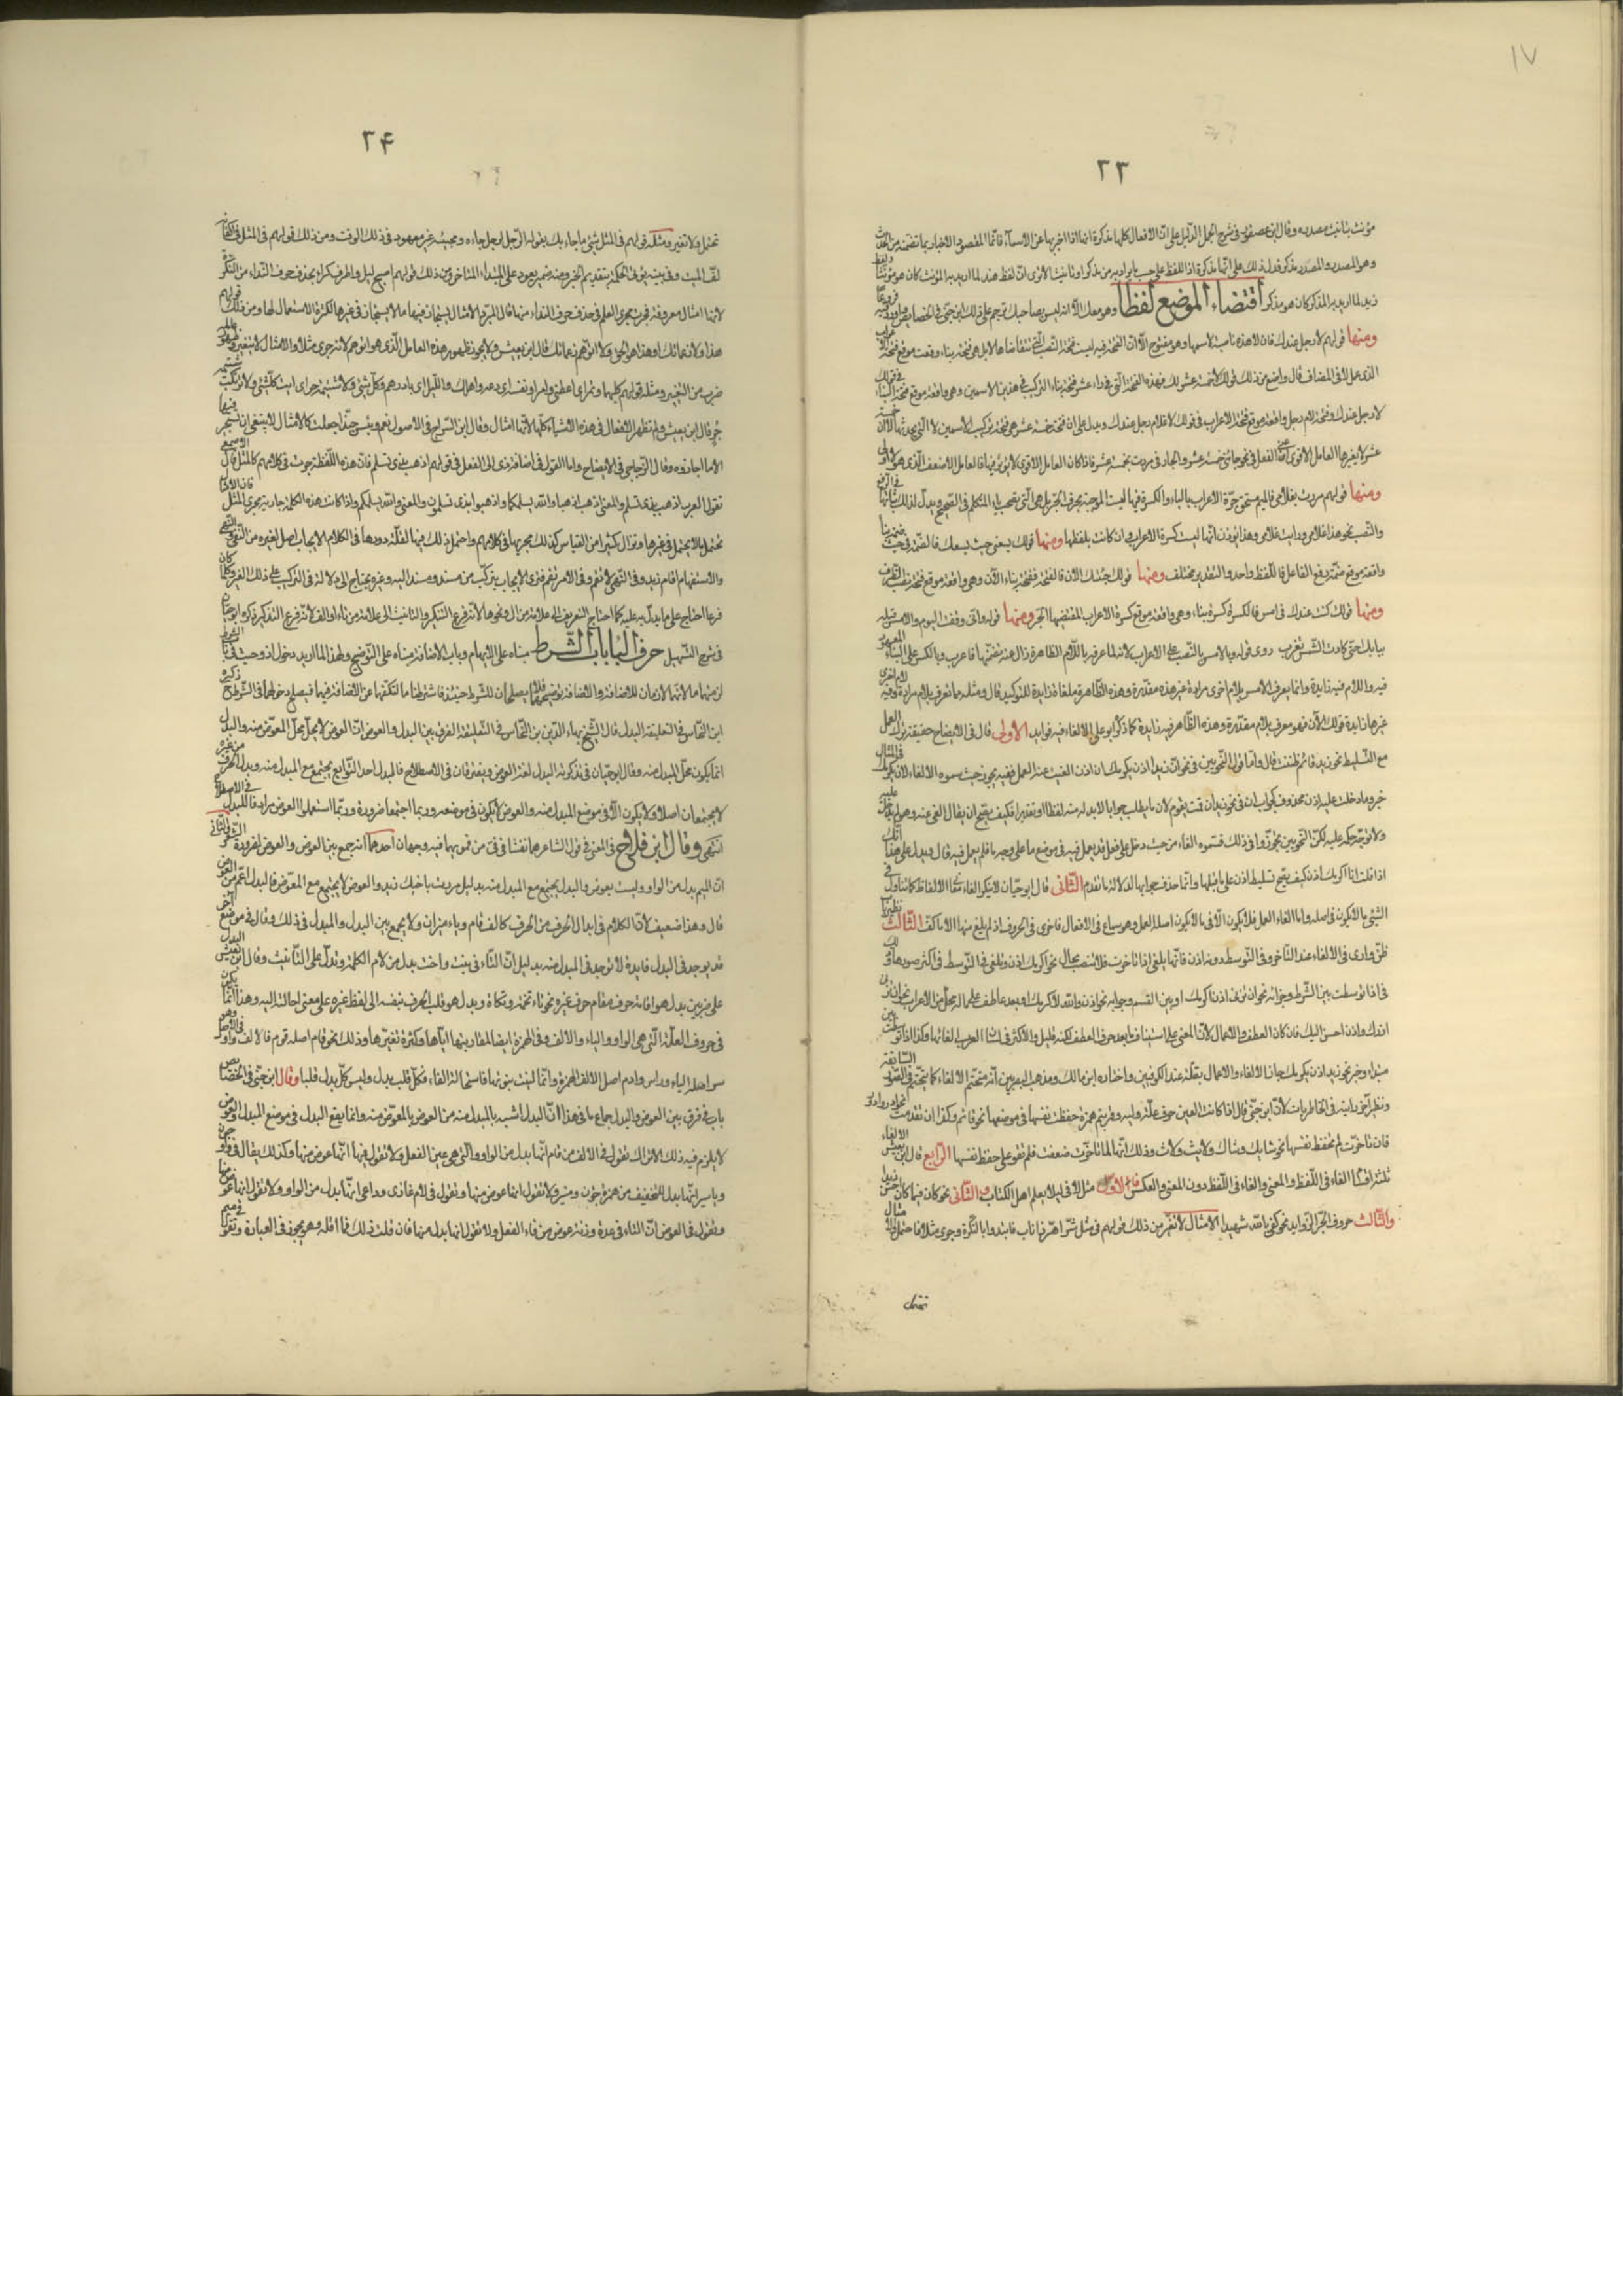 ١٧
٢٣
مؤنث بتانيث مصدره وقال ابن عصفور فى شرح الجمل الدليل على انّ الافعال كلها مذكرة انها اذا اخبر بها عن الاسماء فانما المقصود الاخبار بما تضمنه من الحدث
وهو المصدر والمصدر مذكر فدل ذلك على انّها مذكرة اذ اللفظ على حسب ما يراد به من تذكير او تانيث الا ترى انّ لفظ هند لما اريد به المؤنث كان هو مؤنثا ولفظ
زيد لما اريد به المذكر كان هو مذكرا اقتضاء الموضع لفظا وهو معك الا انه ليس بصاحبك ترجم على ذلك ابن جنى فى الخصائص واورد فيه فروعا
ومنها قولهم لا رجل عندك فان لا هذه ناصبة لاسمها وهو مفتوح الا انّ الفتحة فيه ليست فتحة النصب التى تتقاضاها لا بل هى فتحة بناء وقعت موقع فتحة الاعراب
الذى عمل لا فى المضاف قال واضع من ذلك قولك لا خمسة عشر لك فهذه الفتحة الآن فى راء عشر فتحة بناء التركيب فى هذين الاسمين وهى واقعة موقع فتحة البناء فى قولك
لا رجل عندك وفتحة لام رجل واقعة موقع فتحة الاعراب فى قولك لا غلام رجل عندك ويدل على ان فتحة خمسة عشر هى فتحة تركيب الاسمين لا التى يحدثها لا ان خمسة
عشر لا يغيرها العامل الاقوى اعنى الفعل فى نحو جائنى خمسة عشر والجار فى مررت بخمسة عشر فاذا كان العامل الاقوى لا يؤثر فيها فالعامل الاضعف الذى هو لا اولى
ومنها قولهم مررت بغلامى فالميم تستحق جرّة الاعراب بالباء والكسرة فيها ليست الموجبة بحرف الجر بل هى التى تصحب ياء المتكلم فى الصحيح ويدل لذلك ثباتها فى الرفع
والنصب نحو هذا غلامى ورايت غلامى وهذا يؤذن انها ليست كسرة الاعراب وان كانت بلفظها ومنها قولك يسعنى حيث يسعك فالضمّة فى حيث ضمة بناء
واقعة موقع ضمّة رفع الفاعل فاللفظ واحد والتقدير مختلف ومنها قولك جئتك الآن فالفتحة فتحة بناء الآن وهى واقعة موقع فتحة نصب الظرف
ومنها قولك كنت عندك فى امس فالكسرة كسرة بناء وهى واقعة موقع كسرة الاعراب المقتضيها الجر ومنها قوله وانّى وقفت اليوم والامس قبله
ببابك حتى كادت الشمس تغرب روى قوله والامس بالنصب على الاعراب لانه لما عرفه باللام الظاهرة زال عنه تضمّنها فاعرب وبالكسر على البناء المعهود
فيه واللام فيه زايدة وانما يعرف الامس بلام اخرى مرادة غير هذه مقدّرة وهذه الظاهرة ملقاة زايدة للتوكيد قال ومثله مما تعرف بلام مرادة وفيه لام اخرى
غيرها زايدة قولك الآن فهو معرف بلام مقدّرة وهذه الظاهرة فيه زايدة كما ذكر ابو على الالغاء فيه فوايد الاولى قال فى الايضاح حقيقته ترك العمل
مع التسليط نحو زيد قائم ظننت قال وامّا قول النحويين فى نحو انّ زيدا اذن يكرمك ان اذن الغيت عن العمل ففيه تجوز حيث سموه الالغاء لان يكرمك فى المثال
خبر وما دخلت عليه اذن محذوف كجواب ان فى نحو زيد ان قمت يقوم لان ما يطلب جوابا لا بد له منه لفظا او تقديرا فكيف يصحّ ان يقال الغى عنه وهو لم يدخل عليه
ولا توجّه حكمه عليه لكنّ النحويين تجوّزوا فى ذلك فسموه الغاء من حيث دخل على فعل قد يعمل فيه فى موضع ما على وجه ما فلم يعمل فيه قال ويدل على هذا انّك
اذا قلت انا اكرمك اذن كيف يصح تسليط اذن على ما قبلها وانّما حذف جوابها لدلالة ما تقدم الثانى قال ابوحيّان لا ينكر الغاء عمل الالفاظ كما يتاول فى
الشئى ما لا يكون فى اصله واما الغاء العمل فلا يكون الا فى ما لا يكون اصله العمل وهو سماع فى الافعال فاحرى فى الحروف اذ لم يلغ منها الا ما كفّ الثالث نظيرتا
ظنّ وارى فى الالغاء عند التاخر وفى التوسط دونه اذن فانّها يلغى اذا تاخرت فلا تنصب بحال نحو اكرمك اذن وتلغى فى التوسط فى اكثر صورها و
فى اذا توسطت بين الشرط وجزائه نحو ان تزرنى اذن اكرمك او بين القسم وجوابه نحو اذن والله لاكرمك او بعد عاطف على ما له محل من الاعراب نحو ان تزرنى
ازرك واذن احسن اليك فان كان العطف والاعمال لانّ المعنى على استيناف ما بعد حرف العطف لكنه قليل والاكثر فى لسان العرب الغائها وكذا اذا توسطت بين
مبتداء وخبر نحو زيد اذن يكرمك جاز الالغاء والاعمال بقلّة عند الكوفيين واختاره ابن مالك ومذهب البصريين انّه متحتم الالغاء كما تحتّم فى الصور السابقة
ونظير آخر رايته فى الخاطريات لابن جنّى قال اذا كانت العين حرف علة وليه وقريهم همزة حفظت نفسها فى موضعها نحو قائم وكذا ان تقدمت نحو ادور وادؤر
فان تاخرت لم تحفظ نفسها نحو شايك وشاك ولايث ولاث وذلك انها لما تاخرت ضعفت فلم تقو على حفظ نفسها الرابع قال ابن يعيش الالغاء
ثلثة اقسام الغاء فى اللفظ والمعنى والغاء فى اللفظ دون المعنى والعكس فالاول مثل لا فى ليلا يعلم اهل الكتاب والثانى نحو كان فيما كان احسن زيدا
والثالث حروف الجر الزوايد نحو كفى بالله شهيدا الامثال لا تغيّر من ذلك قولهم فى مثل شر اهرّ ذا ناب فابتدوا بالنكرة وجرى مثلا فاحتمل مثال
تحتمل
٢٤
تحتمل ولا تغير ومثله قولهم فى المثل شئى ما جاء بك يقوله الرّجل لرجل جاءه ومجيئه غير معهود فى ذلك الوقت ومن ذلك قولهم فى المثل فى اكفانه
لفّ الميت وفى بيته يؤتى الحكم بتقديم الخبر وفيه ضمير يعود على المبتداء المتاخر ومن ذلك قولهم اصبح ليل واطرق كرا بحذف حرف النداء من النكرة
لانها امثال معروفة فجرت مجرى العلم فى حذف حرف النداء منها قال المبرد الامثال يستجاز فيها ما لا يستجاز فى غيرها لكثرة الاستعمال لها ومن ذلك قولهم
هذا ولا زعماتك اى هذا هو الحق ولا اتوهم زعماتك قال ابن يعيش ولا يجوز ظهور هذا العامل الذى هو اتوهم لانه جرى مثلا والامثال لا تغير وظهور عامله
ضرب من التغيير ومثله قولهم كليهما وتمرا اى اعطنى وامرا ونفسه اى دعه واهلك والليل اى بادرهم وكل شئى ولا شتيمة حر اى ايت كل شئى ولا ترتكب شتيمة
حر قال ابن يعيش ولم تظهر الافعال فى هذه الاشياء كلها لانها امثال وقال ابن السراج فى الاصول نعم وبئس وحبّذا جعلت كالامثال لا ينبغى ان تستجيز فيها
الا ما اجازوه وقال الزجاجى فى الايضاح واما القول فى اضافة ذى الى الفعل فى قولهم اذهب بذى تسلم فان هذه اللفظة جرت فى كلامهم كالمثل قال الاصمعى
تقول العرب اذهب بذى تسلم والمعنى اذهب اذهبا والله يسلمكما واذهبوا بذى تسلمون والمعنى والله يسلمكم واذا كانت هذه الكلمة جارية مجرى المثل فان الامثال
تحتمل ما لا يحتمل فى غيرها وتزال كثيرا من القياس كذلك يجربها فى كلامهم واحتمل ذلك فيها لقلة دورها فى الكلام الايجاب اصل لغيره من النفى والنهى
والاستفهام قام زيد وفى النهى لا تقم وفى الامر قم فترى الايجاب يتركّب من مسند ومسند اليه وغيره يحتاج الى دلالة فى التركيب على ذلك الغير وكلما كان
فرعا احتاج على ما يدل به عليه كما احتاج التعريف الى علامة من ال ونحوها لانه فرع التنكير والتانيث الى علامة من تاء او الف لانه فرع التذكير ذكره ابو حيان
فى شرح التسهيل حرف البا باب الشرط مبناه على الابهام وباب الاضافة مبناه على التوضيح ولهذا لما اريد دخول اذ وحيث فى باب الشرط
لزمتها ما لانهما لازمان للاضافة والاضافة توضيح فلا يصلحان للشرط حينئذ فاشترطنا ما لتكفّهما عن الاضافة فيهما فيصلح دخولهما فى الشرط ذكره
ابن النحاس فى التعليقة البدل قال الشيخ بهاء الدين بن النحاس فى التعليقة الفرق بين البدل والعوض انّ العوض لا يحلّ محل المعوّض منه والبدل
انما يكون محل المبدل منه وقال ابوحيّان فى تذكرته البدل لغة العوض ويفترقان فى الاصطلاح فالبدل احد التوابع يجتمع مع المبدل منه وبدل الحرف من غيره
لا يجتمعان اصلا ولا يكون الا فى موضع المبدل منه والعوض لا يكون فى موضعه وربما اجتمعا ضرورة وربّما استعملوا العوض مرادفا للبدل فى الاصطلاح
انتهى وقال ابن فلاح فى المغنى فى قول الشاعر هما نفثا فى فىّ من فمويهما فيه وجهان احدهما انه جمع بين العوض والمعوض لضرورة والثانى
انّ الميم بدل من الواو وليست بعوض والبدل يجتمع مع المبدل منه بدليل مررت باخيك زيد والعوض لا يجتمع مع المعوّض فالبدل اعم من العوض
قال وهذا ضعيف لانّ الكلام فى ابدال الحرف من الحرف كالف قام وياء ميزان ولا يجمع بين البدل والمبدل فى ذلك وقال فى موضع آخر
قد يوجد فى البدل فايدة لا توجد فى المبدل منه بدليل انّ التاء فى بنت واخت بدل من لام الكلمة وتدل على التانيث وقال ابن يعيش البدل
على ضربين بدل هو اقامة حرف مقام حرف غيره نحو تاء تخمة وتكاة وبدل هو قلب الحرف نفسه الى لفظ غيره على معنى احالته اليه وهذا انّما يكون
فى حروف العلّة التى هى الواو والياء والالف وفى الهمزة ايضا لمقاربتها اياها وكثرة تغيّرها وذلك نحو قام اصله قوم فالالف واو فى الاصل
سر اصله الياء وراس وادم اصل الالف الهمزة وانّما لينت نبرتها فاستحالت الفاء فكل قلب بدل وليس كل بدل قلبا وقال ابن جنّى فى الخصائص
باب فى فرق بين العوض والبدل جماع ما فى هذا انّ البدل اشبه بالمبدل منه من العوض بالمعوّض منه وانما يقع البدل فى موضع المبدل والعوض
لا يلزم فيه ذلك الا تراك تقول فى الالف من قام انّها بدل من الواو التى هى عين الفعل ولا تقول فيها انّها عوض منها وكذلك يقال فى واو جون
وياء مير انّها بدل للتخفيف من همزة جؤن ومئر ولا تقول انها عوض منها وتقول فى لام غازى وداعى انّها بدل من الواو ولا تقول انها عوض منها
وتقول فى العوض انّ التاء فى عدة وزنة عوض من فاء الفعل ولا تقول انها بدل منها فان قلت ذلك فما اقله وهو يجوز فى العبارة وتقول فى ميم